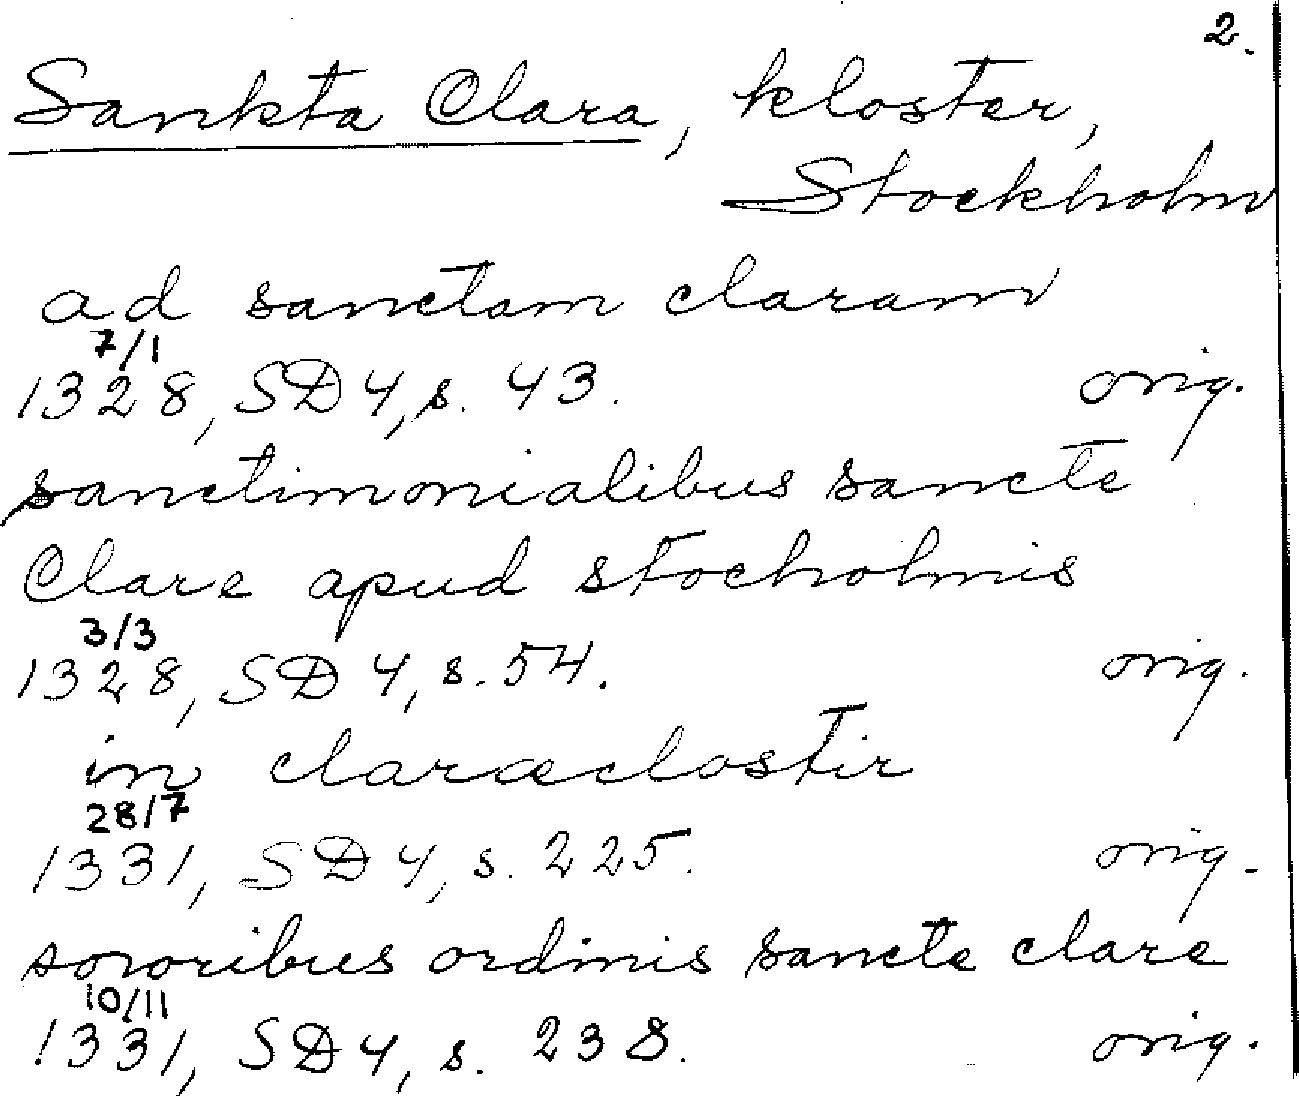 2.
Sankta Clara, kloster,
Stockholm
ad sanctam claram
7/1
1328, SD 4, s. 43. orig.
sanctimonialibus sancte
Clare apud stocholmis
3/3
1328, SD 4, s. 54. orig.
in claræclostir
28/7
1331, SD 4, s. 225. orig.
sororibus ordinis sancte clare
10/11
1331, SD 4, s. 238. orig.